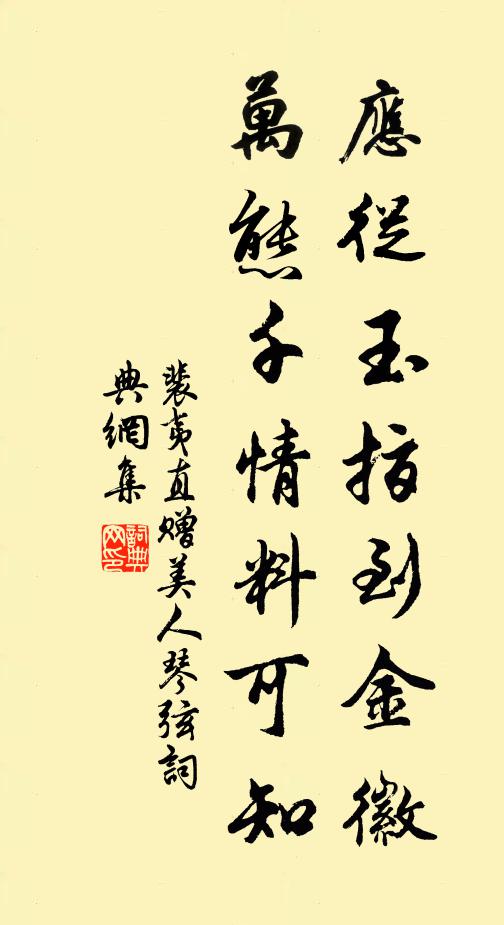 應從玉指到金徽
萬態千情料可知
裴夷直贈美人琴弦詞
典網集
詞典網印